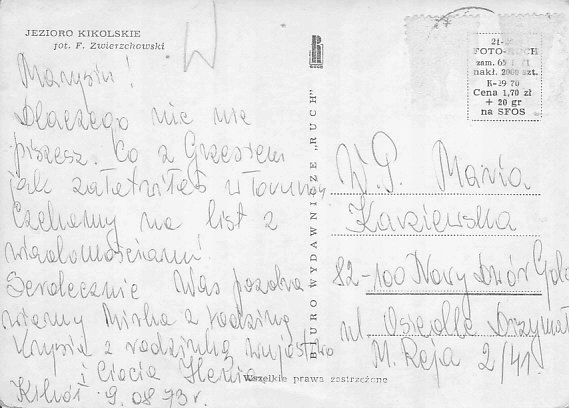 JEZIORO KIKOLSKIE
fot. F. Zwierzchowski
Marysiu!
Dlaczego nic nie
piszesz. Co z Grzesiem
jak załatwiłeś w Toruniu
Czekamy na list z
wiadomościami!
Serdecznie Was pozdra
wiamy Mirka z rodziną
Krysia z rodzinką wujostwo
i Ciocia Henia
Kikół 9.08.73r.
BIURO WYDAWNICZE „RUCH"
21-
FOTO-RUCH
zam. 65
nakł. 2000 szt.
K-29 70
Cena 1,70 zł
+ 20 gr
na SFOS
W.P. Maria
82-100 Nowy Dwór Gda
ul Osiedlle Drzymał
M. Reja 2/41
Wszelkie prawa zastrzeżone